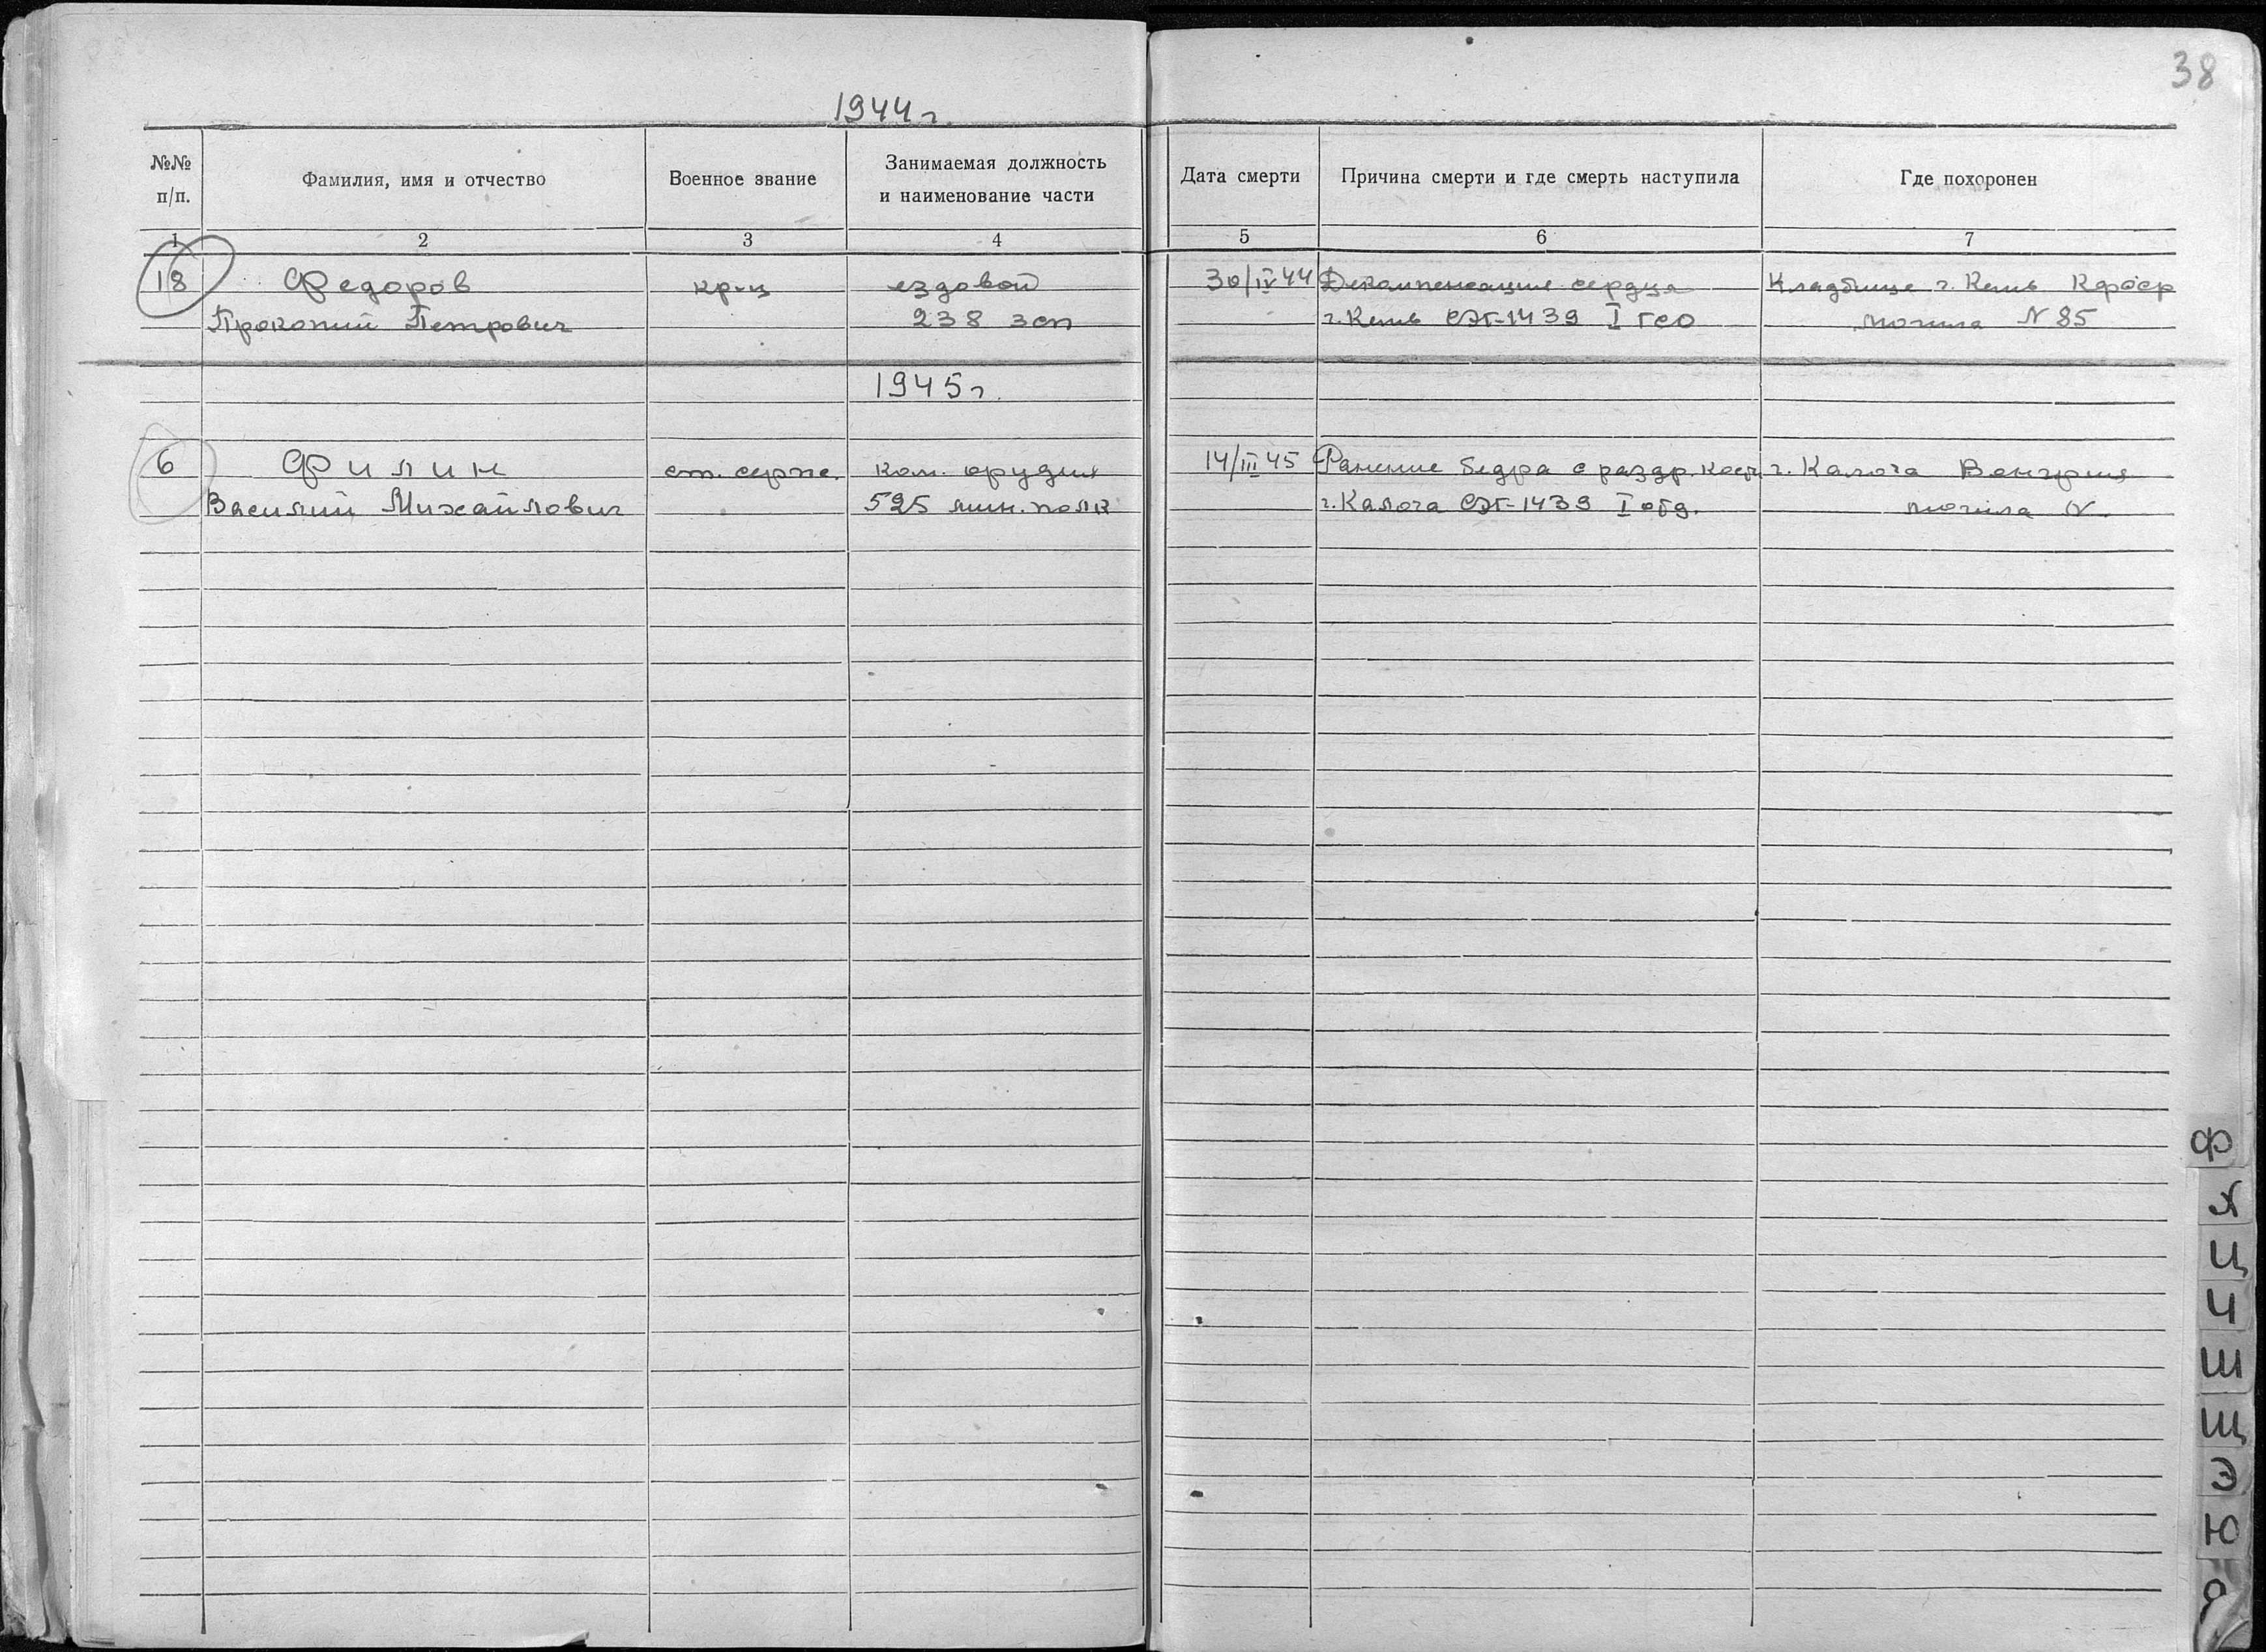 38
1944г.
№№ п/п. Фамилия, имя и отчество Военное звание Занимаемая должность и наименование части Дата смерти Причина смерти и где смерть наступила Где похоронен
1 2 3 4 5 6 7
18 Федоров кр-ц ездовой 30/IV 44 Декомпенсация сердца Кладбище г. Кемь КФССР
Прокопий Петрович 238 зсп г. Кемь СЭГ-1439 I гсо могила N 85
1945г.
6 Филин ст. серж. ком. орудия 14/III 45 Ранение бедра с раздр. кост. г. Калоча Венгрия
Василий Михайлович 525 мин. полк г. Калоча СЭГ-1439 I отд. могила N.
Ф
Х
Ц
Ч
Ш
Щ
Э
Ю